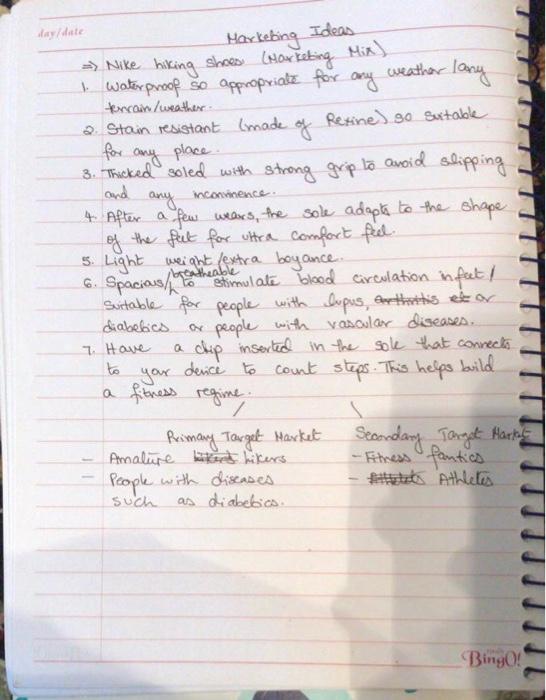 day/date
Marketing Ideas
⇒ Nike hiking shoes (Marketing Mix)
1. Waterproof so appropriate for any weather/any
terrain/weather.
2. Stain resistant (made of Rexine) so suitable
for any place.
3. Thicked soled with strong grip to avoid slipping
and any
4. After a few wears, the sole adapts to the shape
of the feet for ultra comfort feel.
5. Light weight/extra boyance.
6. Spacious/breatheable to stimulate blood circulation in feet/
suitable for people with lupus, arthritis or
diabetics or people with vascular diseases.
7. Have a chip inserted in the sole that connects
to your device to count steps. This helps build
a fitness regime.
Primary Target Market Secondary Target Market
- Amature hikers - Fitness fantics
- People with diseases - Athletes
such as diabetics.
BingO!